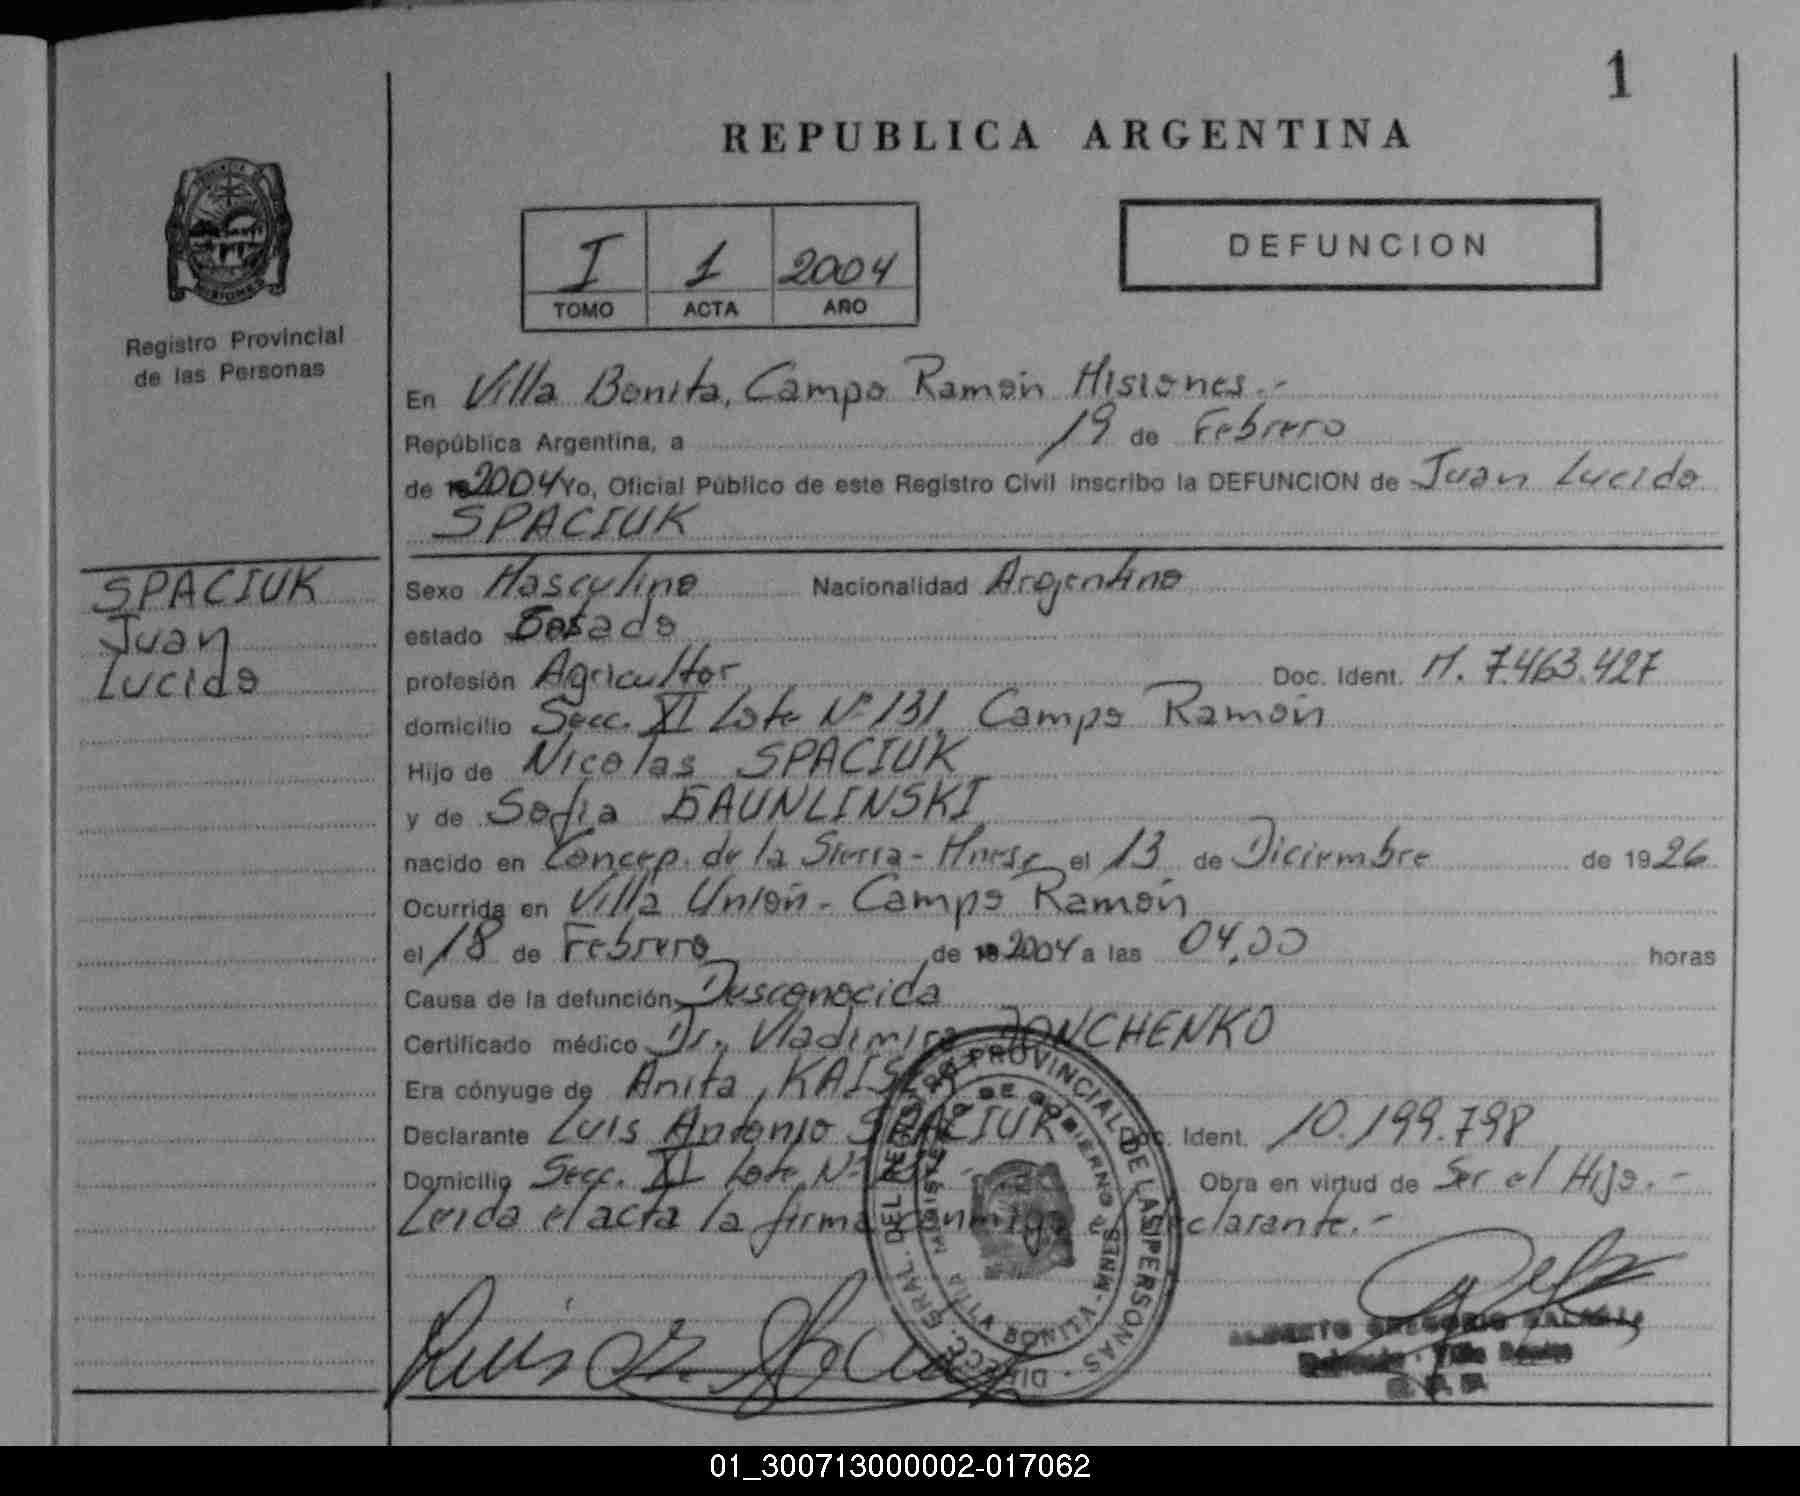 1
REPUBLICA ARGENTINA
I 1 2004
TOMO ACTA AÑO
DEFUNCION
Registro Provincial
de las Personas
En Villa Bonita, Campo Ramón Misiones.-
República Argentina, a 19 de Febrero
de 2004 Yo, Oficial Público de este Registro Civil inscribo la DEFUNCION de Juan Lucido
SPACIUK
SPACIUK
Juan
Lucido
Sexo Masculino Nacionalidad Argentino
estado Casado
profesión Agricultor Doc. Ident. M. 7.463.427
domicilio Secc. XI Lote Nº 131, Campo Ramón
Hijo de Nicolas SPACIUK
y de Sofia BAUNLINSKI
nacido en Concep. de la Sierra - Mnes, el 13 de Diciembre de 1926
Ocurrida en Villa Unión - Campo Ramón
el 18 de Febrero de 2004 a las 04,00 horas
Causa de la defunción Desconocida
Certificado médico Dr. Vladimiro JONCHENKO
Era cónyuge de Anita, KAIS
Declarante Luis Antonio SPACIUK Doc. Ident. 10.199.798
Domicilio Secc. XI Lote Nº Obra en virtud de Ser el Hijo.-
Leida el acta la firma conmigo el declarante.-
DIRECC. GRAL. DEL REGISTRO PROVINCIAL DE LAS PERSONAS
MINISTERIO DE GOBIERNO
VILLA BONITA - MNES
ALBERTO GREGORIO
01_300713000002-017062